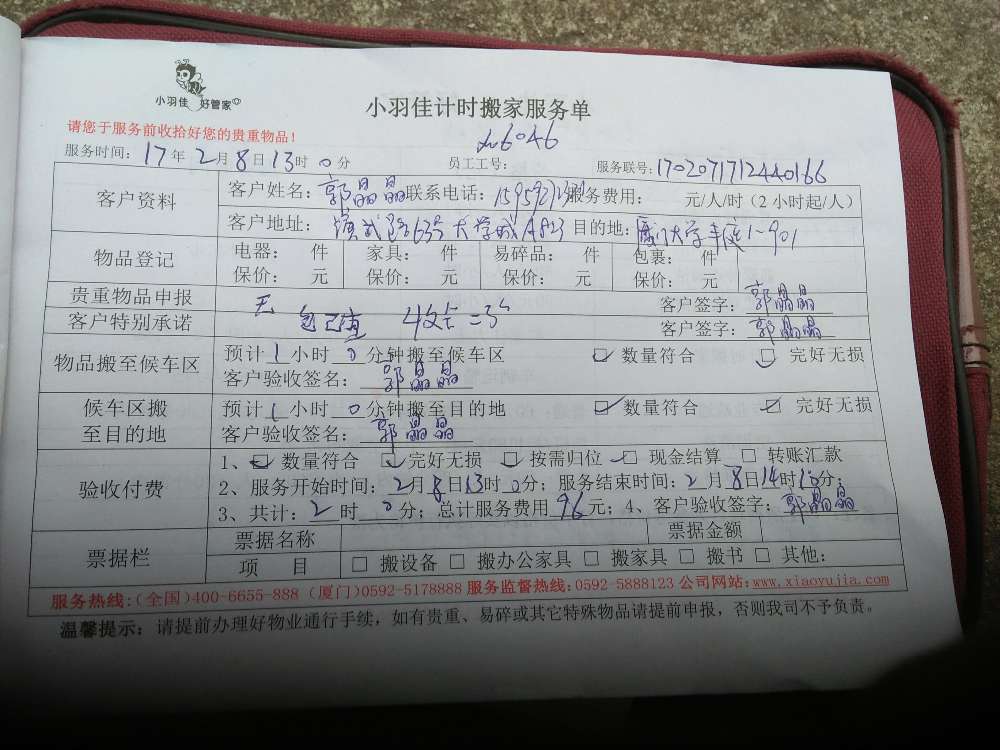 小羽佳 好管家
小羽佳计时搬家服务单
请您于服务前收拾好您的贵重物品！
6046
服务时间：17年2月8日13时0分 员工工号： 服务联号：1702071712440166
客户资料 客户姓名：郭晶晶 联系电话： 服务费用： 元/人/时（2小时起/人）
客户地址： 大学城A823 目的地：厦门大学丰庭1-901
物品登记 电器： 件 家具： 件 易碎品： 件 包裹： 件
保价： 元 保价： 元 保价： 元 保价： 元
贵重物品申报 无 客户签字：郭晶晶
客户特别承诺 客户签字：郭晶晶
物品搬至候车区 预计1小时0分钟搬至候车区 数量符合 完好无损
客户验收签名：郭晶晶
候车区搬至目的地 预计1小时0分钟搬至目的地 数量符合 完好无损
客户验收签名：郭晶晶
验收付费 1、数量符合 完好无损 按需归位 现金结算 转账汇款
2、服务开始时间：2月8日13时0分；服务结束时间：2月8日14时15分；
3、共计：2时0分；总计服务费用96元；4、客户验收签字：郭晶晶
票据栏 票据名称 票据金额
项 目 搬设备 搬办公家具 搬家具 搬书 其他：
服务热线：（全国）400-6655-888（厦门）0592-5178888 服务监督热线：0592-5888123 公司网站：www.xiaoyujia.com
温馨提示：请提前办理好物业通行手续，如有贵重、易碎或其它特殊物品请提前申报，否则我司不予负责。